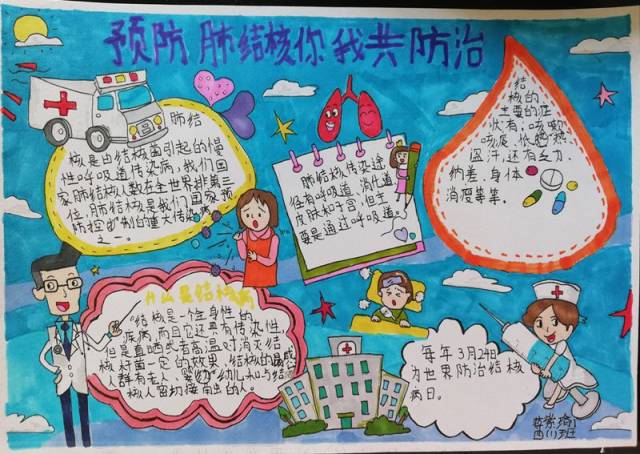 预防肺结核你我共防治
肺结
核是由结核菌引起的慢
性呼吸道传染病,我们国
家肺结核人数在全世界排第三
位,肺结核是我们国家预
防控制的重大传染病
之一。
肺结核传染途
径有呼吸道、消化道
皮肤和子宫,但主
要是通过呼吸道。
结
核的
主要的症
状有:咳嗽
咳痰、低热
盗汗,还有乏力、
纳差、身体
消瘦等等。
什么是结核病
"结核是一个全身性的
疾病而且它还具有传染性,
但是直晒或者高温对消灭结
核杆菌一定的效果,结核的易感
人群有老人、婴幼儿和与结
核人密切接触的人。
每年3月24日
为世界防治结核
病日。
四(1)班